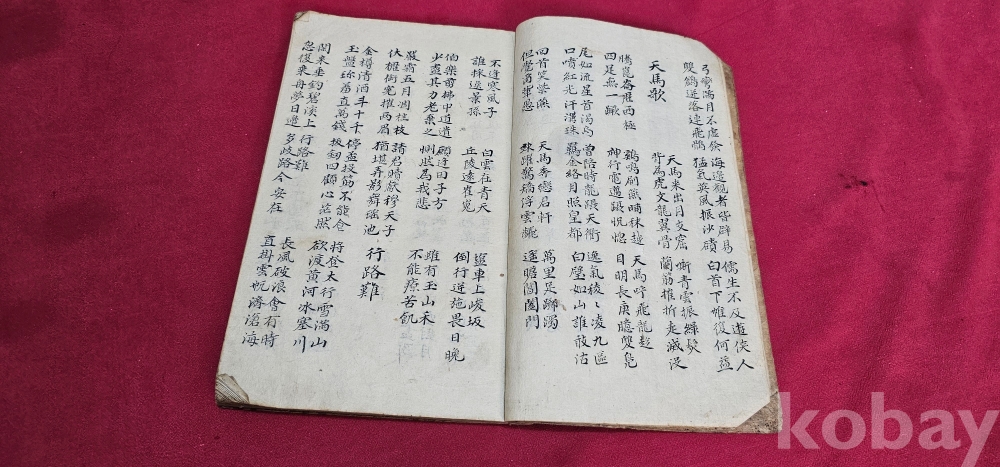 弓彎滿月不虛發 海邊觀者皆辟易 儒生不及遊俠人
雙鶬迸落連飛髇 猛氣英風振沙磧 白首下帷復何益
天馬歌 天馬來出月支窟 嘶青雲振綠髮
背為虎文龍翼骨 蘭筋推折走滅沒
騰崑崙歷西極 鷄鳴刷燕晡秣越 天馬呼飛龍趨
四足無一蹶 神行電邁躡恍惚 目明長庚臆雙鳧
尾如流星首渴烏 曾陪時龍躍天衢 逸氣稜〻凌九區
口噴紅光汗溝珠 羈金絡月照皇都 白璧如山誰敢沽
回首笑紫燕 天馬奔戀君軒 萬里足躑躅
但覺爾輩愚 駷躍驚矯浮雲翻 遙瞻閶闔門
不逢寒風子 白雲在青天 鹽車上峻坂
誰採逸景孫 丘陵遠崔嵬 倒行逆施畏日晚
伯樂剪拂中道遺 願逢田子方 雖有玉山禾
少盡其力老棄之 惻然為我悲 不能療苦飢
嚴霜五月凋桂枝 請君贖獻穆天子 行路難
伏櫪銜冤摧兩眉 猶堪弄影舞瑤池
金樽清酒斗十千 停盃投筯不能食 將登太行雪滿山
玉盤珍羞直萬錢 拔劍四顧心茫然 欲渡黃河冰塞川
閑來垂釣碧溪上 行路難 長風破浪會有時
忽復乘舟夢日邊 多歧路今安在 直掛雲帆濟滄海
kobay